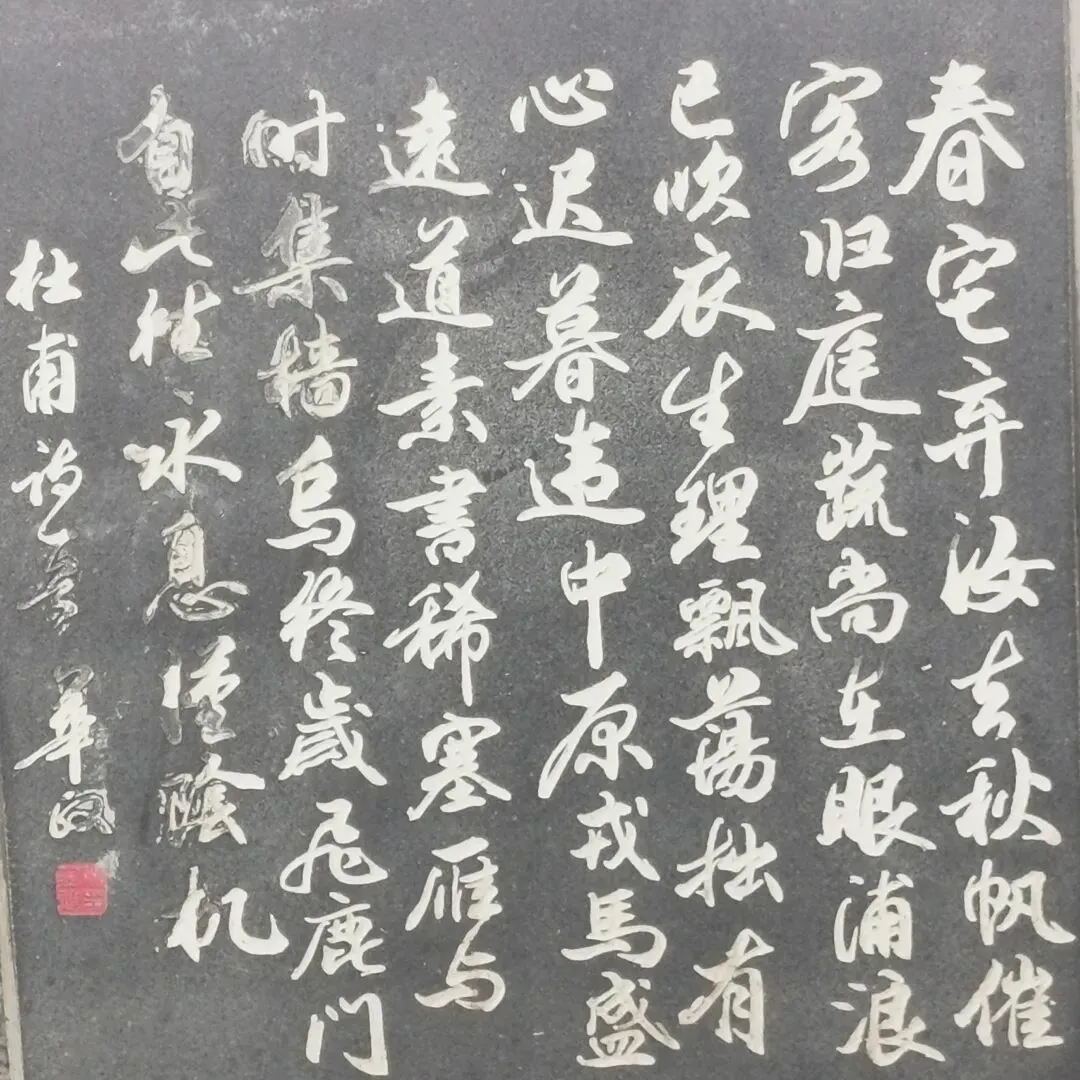 春宅弃汝去秋帆催
客归庭蔬尚在眼浦浪
已吹衣生理飄蕩拙有
心迟暮违中原戎馬盛
遠道素書稀塞雁与
时集檣乌终歲飛鹿门
自此往永息漢陰机
杜甫诗